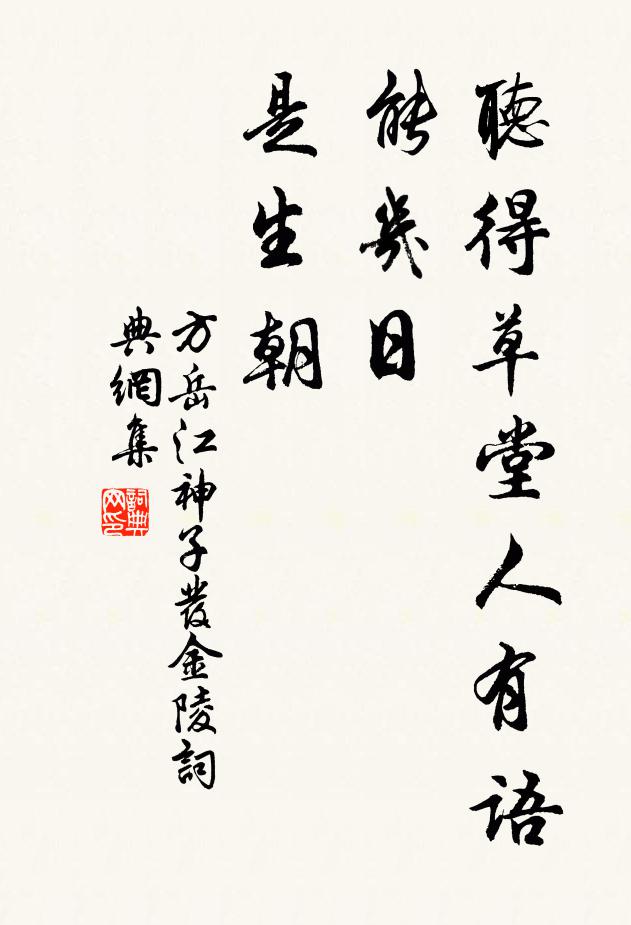 聽得草堂人有語
能幾日
是生朝
方岳江神子發金陵詞
典網集
詞典
网印